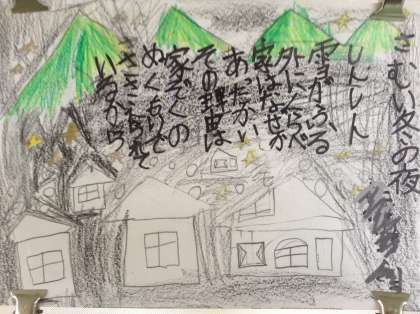 さむい冬の夜
しんしん
雪がふる
外にくらべ
家はなぜか
あたたかい
その理由は
家ぞくの
ぬくもりで
ささえられて
いるから